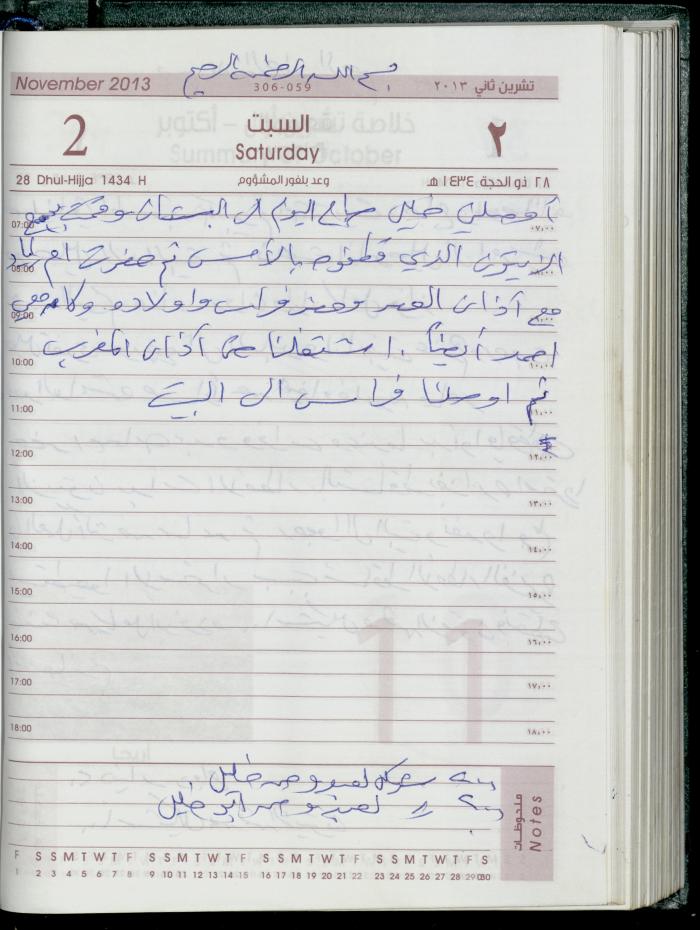 بسم الله الرحمن الرحيم
November 2013 306-059 تشرين ثاني ٢٠١٣
2 السبت ٢
Saturday
28 Dhul-Hijja 1434 H وعد بلفور المشؤوم ٢٨ ذو الحجة ١٤٣٤ هـ
أوصلني خليل صباح اليوم الى البستان وقمت بجمع
07:00 ٠٧,٠٠
الزيتون الذي قطفوه بالأمس ثم حضرت ام
08:00 ٠٨,٠٠
مع آذان العصر وحضر فراس واولاده وكان معي
09:00 ٠٩,٠٠
احمد أيضاً . اشتغلنا حتى آذان المغرب
10:00 ١٠,٠٠
ثم اوصلنا فراس الى البيت
11:00 ١١,٠٠
12:00 ١٢,٠٠
13:00 ١٣,٠٠
14:00 ١٤,٠٠
15:00 ١٥,٠٠
16:00 ١٦,٠٠
17:00 ١٧,٠٠
18:00 ١٨,٠٠
خليل
ابو خليل
ملحوظات Notes
F S S M T W T F S S M T W T F S S M T W T F S S M T W T F S
1 2 3 4 5 6 7 8 9 10 11 12 13 14 15 16 17 18 19 20 21 22 23 24 25 26 27 28 29 30